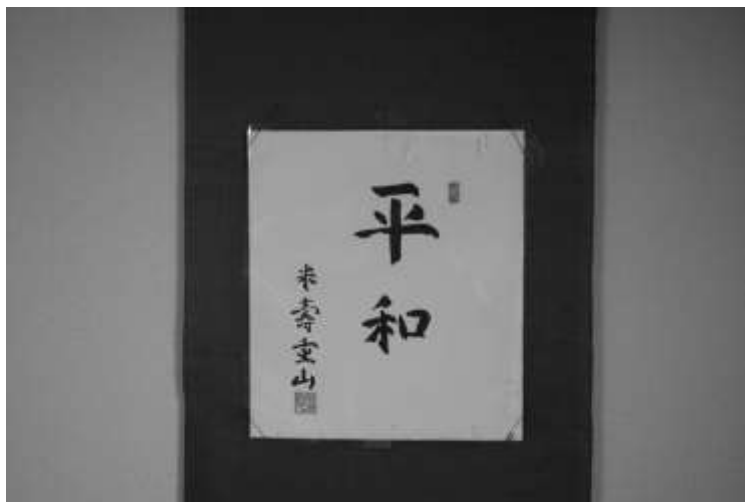 平和
米壽重山